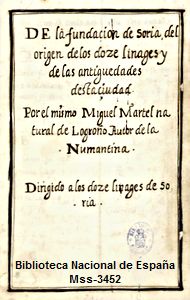 DE la fundacion de Soria, del
origen de los doze linages y
de las antiguedades
desta ciudad
Por el mismo Miguel Martel na
tural de Logroño Autor de la
. Numantina .
Dirigido a los doze linages de So
ria .
Biblioteca Nacional de España
Mss-3452